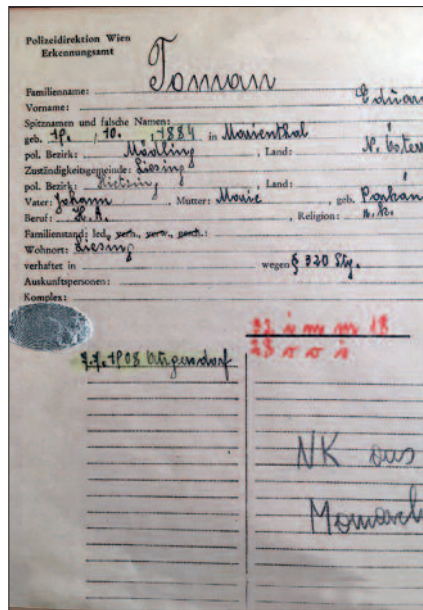 Polizeidirektion Wien
Erkennungsamt
Familienname: Toman
Vorname: Eduard
Spitznamen und falsche Namen:
geb. 19. / 10. / 1884 in Marienthal
pol. Bezirk: Mödling, Land: N. Österr
Zuständigkeitsgemeinde: Liesing
pol. Bezirk: Hietzing, Land:
Vater: Johann Mutter: Marie, geb.
Beruf: H. A., Religion: r. k.
Familienstand: led., verh., verw., gesch.:
Wohnort: Liesing
verhaftet in wegen § 320 Stg.
Auskunftspersonen:
Komplex:
32 18
28
7.7.1908 Atzgersdorf
NK aus
Monarch